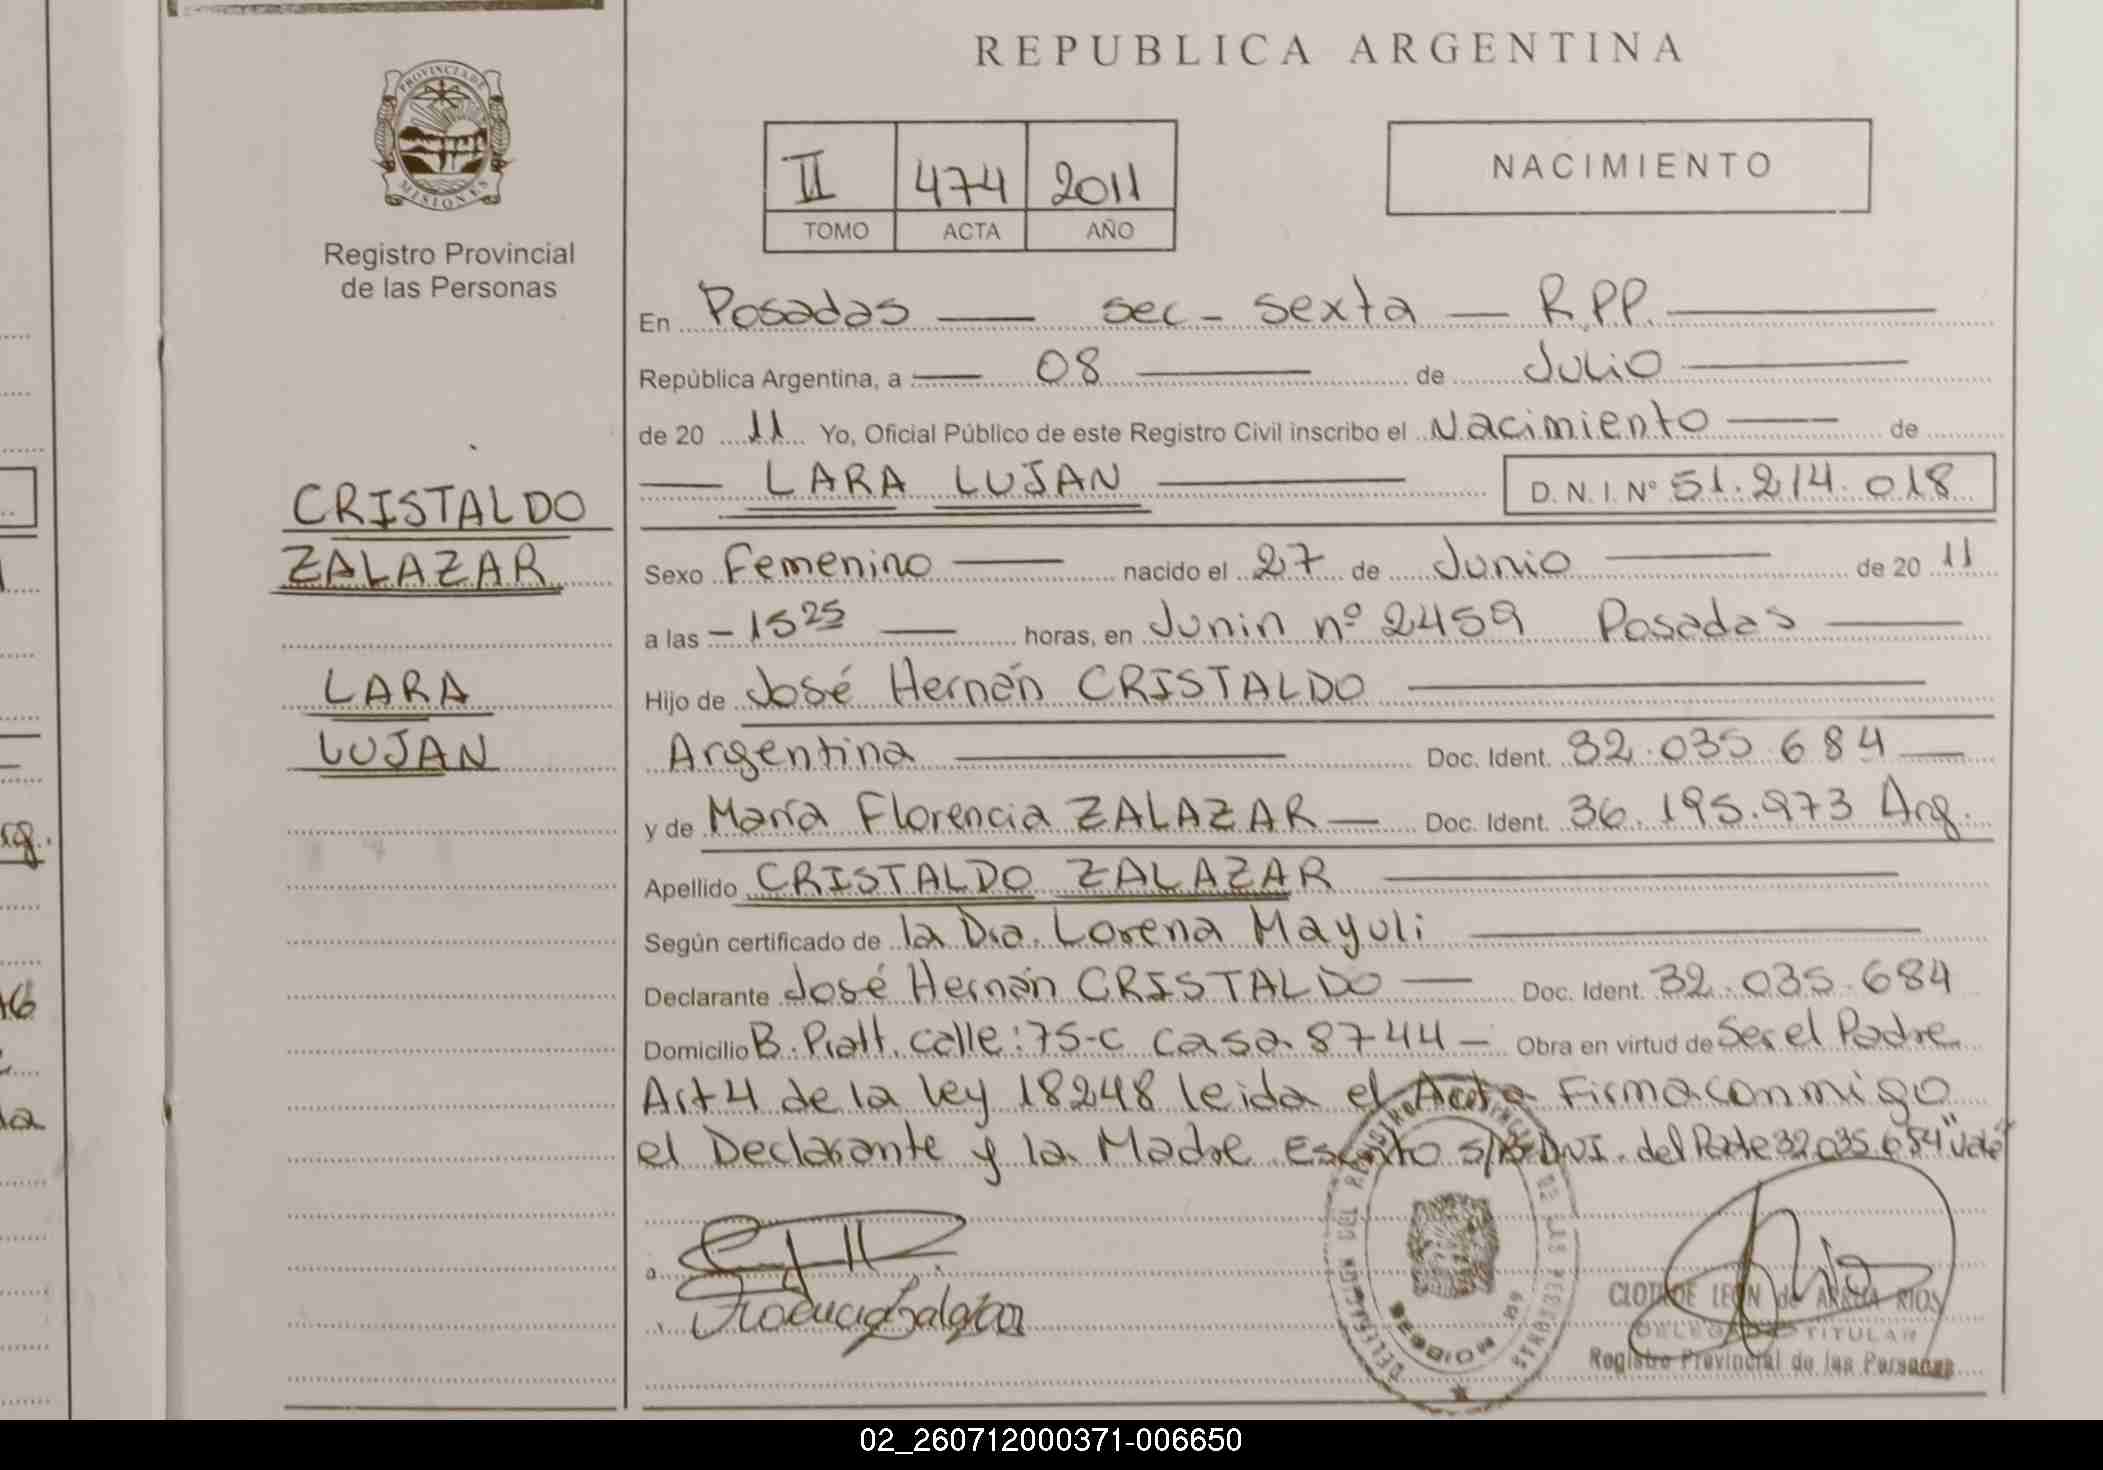 REPUBLICA ARGENTINA
PROVINCIA DE
MISIONES
Registro Provincial
de las Personas
II 474 2011
TOMO ACTA AÑO
NACIMIENTO
En Posadas sec - sexta R.P.P.
República Argentina, a 08 de Julio
de 20 11 Yo, Oficial Público de este Registro Civil inscribo el Nacimiento de
LARA LUJAN D. N. I. Nº 51.214.018
CRISTALDO
ZALAZAR
LARA
LUJAN
Sexo Femenino nacido el 27 de Junio de 20 11
a las 15 25 horas, en Junin nº 2459 Posadas
Hijo de José Hernán CRISTALDO
Argentina Doc. Ident. 32.035.684
y de María Florencia ZALAZAR Doc. Ident. 36.195.973 Arg.
Apellido CRISTALDO ZALAZAR
Según certificado de la Dra. Lorena Mayuli
Declarante José Hernán CRISTALDO Doc. Ident. 32.035.684
Domicilio B. Pratt. calle: 75-C casa 8744 Obra en virtud de Ser el Padre
Art 4 de la ley 18248 leida el Acta Firma conmigo
el Declarante y la Madre Escrito s/R DNI. del Padre 32.035.684 "Vale"
CLOTILDE LEON de ARRUA RIOS
DELEGADA TITULAR
Registro Provincial de las Personas
02_260712000371-006650